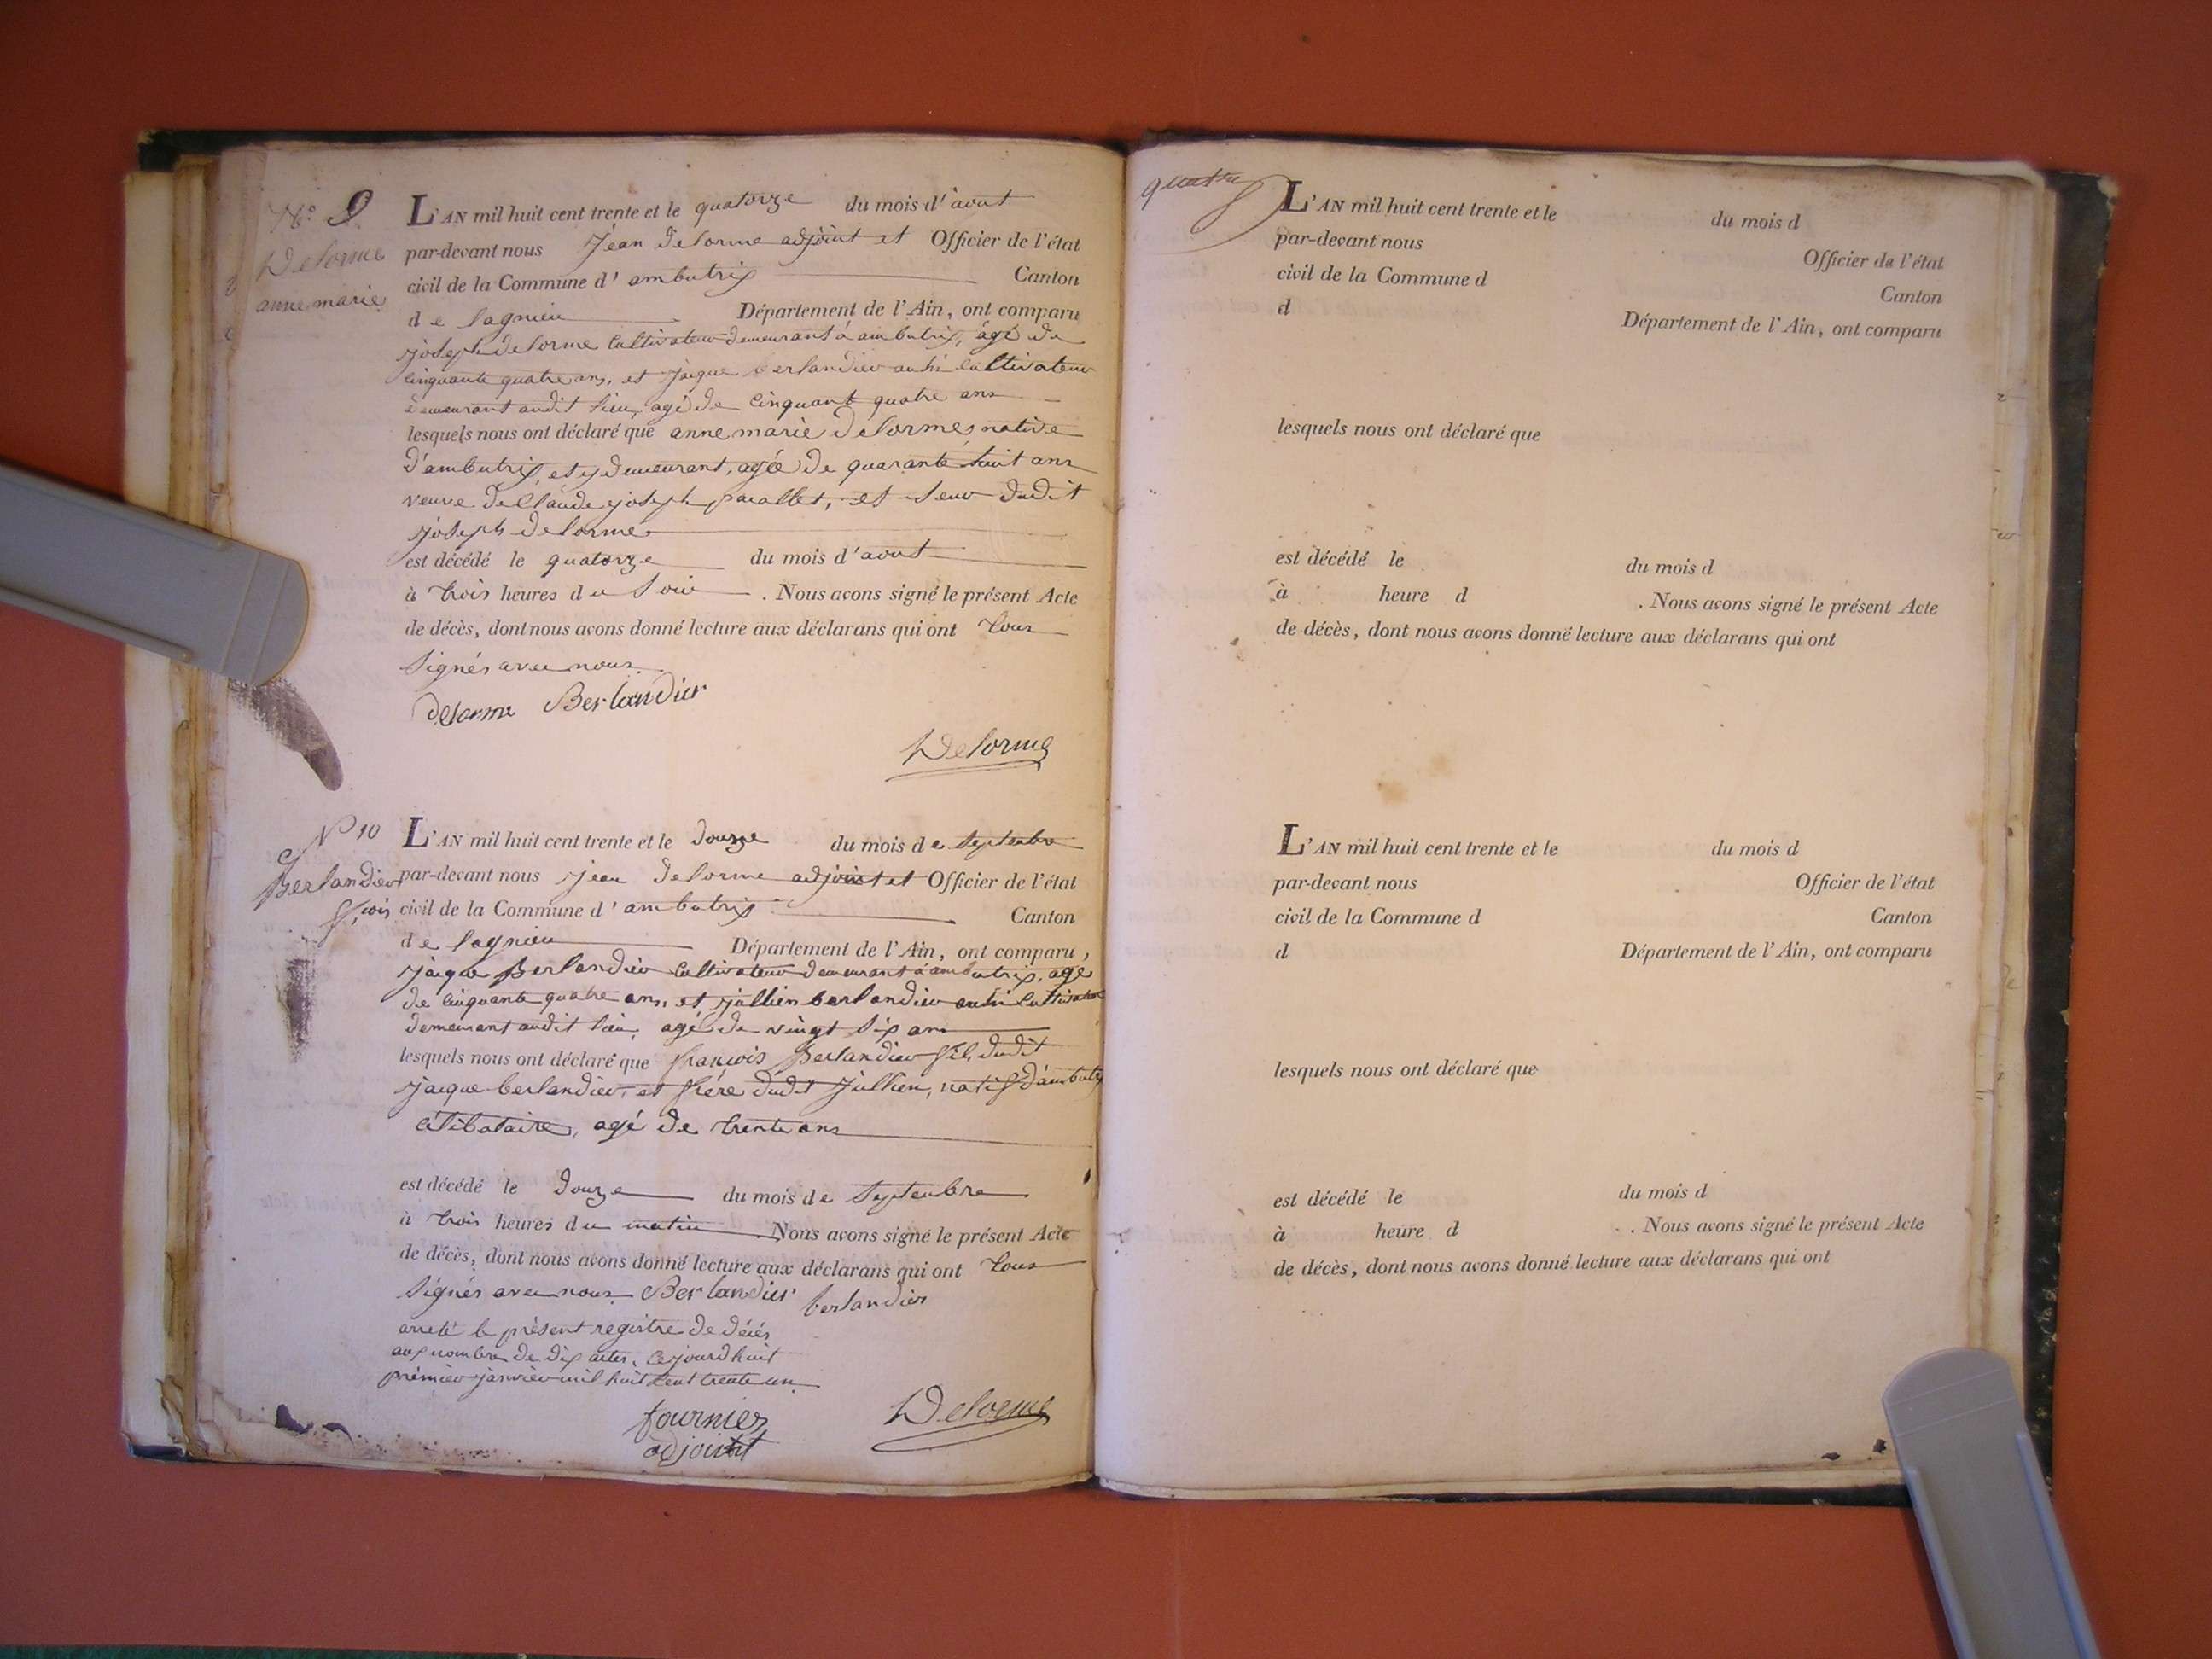 N° 9.
Delorme
anne marie
L'AN mil huit cent trente et le quatorze du mois d'aout
par-devant nous Jean Delorme adjoint et Officier de l'état
civil de la Commune d'ambutrix Canton
de lagnieu Département de l'Ain, ont comparu
joseph delorme cultivateur demeurant à ambutrix, âgé de
cinquante quatre ans, et jaque berlandier aussi cultivateur
demeurant audit lieu, agé de cinquant quatre ans
lesquels nous ont déclaré que anne marie delorme native
d'ambutrix, et y demeurant, agée de quarante huit ans
veuve de Claude joseph, et seur dudit
joseph delorme
est décédé le quatorze du mois d'aout
à trois heures du soir. Nous avons signé le présent Acte
de décès, dont nous avons donné lecture aux déclarans qui ont tous
signés avec nous
delorme Berlandier
Delorme
N° 10
Berlandier
fçois
L'AN mil huit cent trente et le douze du mois de septembre
par-devant nous jean delorme adjoint et Officier de l'état
civil de la Commune d'ambutrix Canton
de lagnieu Département de l'Ain, ont comparu,
jaque Berlandier cultivateur demeurant à ambutrix, agé
de cinquante quatre ans, et jullien berlandier aussi cultivateur
demeurant audit lieu, agé de vingt six ans
lesquels nous ont déclaré que françois Berlandier fils dudit
jaque berlandier, et frére dudit jullien, natif d'ambutrix
célibataire, agé de trente ans
est décédé le douze du mois de septembre
à trois heures du matin. Nous avons signé le présent Acte
de décès, dont nous avons donné lecture aux déclarans qui ont tous
signés avec nous Berlandier berlandier
arreté le présent registre de décés
aux nombre de dix actes, cejourd'huit
prémier janvier mil huit cent trente un
fournier
adjoint
Delorme
quatre
L'AN mil huit cent trente et le du mois d
par-devant nous Officier de l'état
civil de la Commune d Canton
d Département de l'Ain, ont comparu
lesquels nous ont déclaré que
est décédé le du mois d
à heure d . Nous avons signé le présent Acte
de décès, dont nous avons donné lecture aux déclarans qui ont
L'AN mil huit cent trente et le du mois d
par-devant nous Officier de l'état
civil de la Commune d Canton
d Département de l'Ain, ont comparu
lesquels nous ont déclaré que
est décédé le du mois d
à heure d . Nous avons signé le présent Acte
de décès, dont nous avons donné lecture aux déclarans qui ont